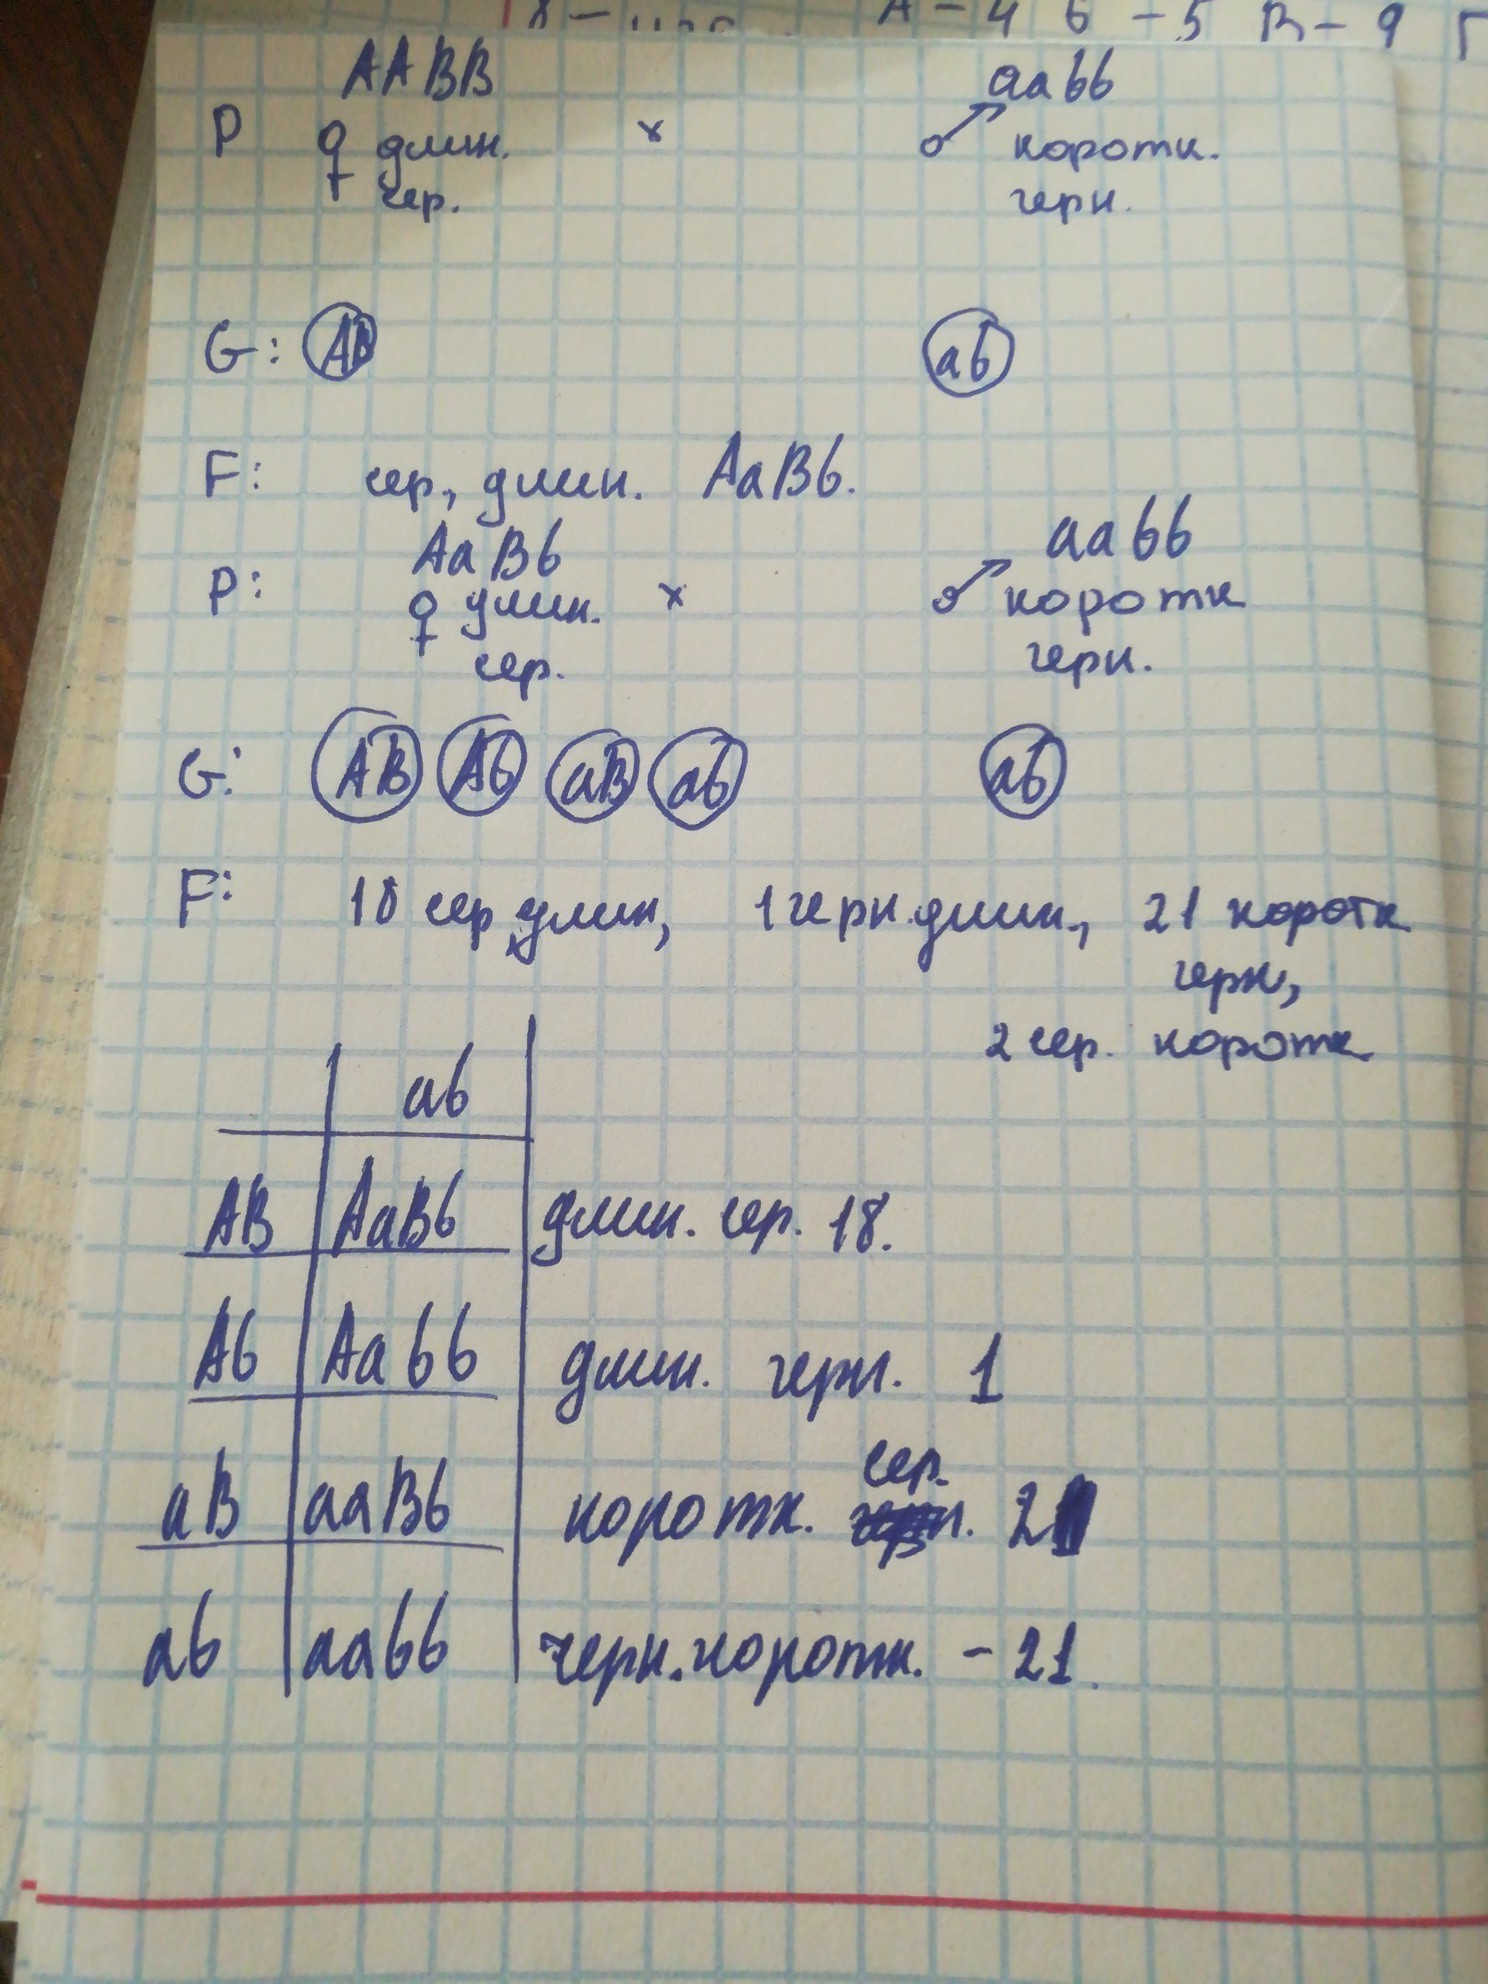 А - 4 Б - 5 В - 9 Г
AABB aabb
P ♀ длин. × ♂ коротк.
сер. черн.
G: AB ab
F: сер., длин. AaBb.
AaBb aabb
P: ♀ длин. × ♂ коротк
сер. черн.
G: AB Ab aB ab ab
F: 18 сер длин, 1 черн. длин., 21 коротк
черн,
2 сер. коротк
ab
AB AaBb длин. сер. 18.
Ab Aabb длин. черн. 1
сер.
aB aaBb коротк. 2
ab aabb черн. коротк. - 21.